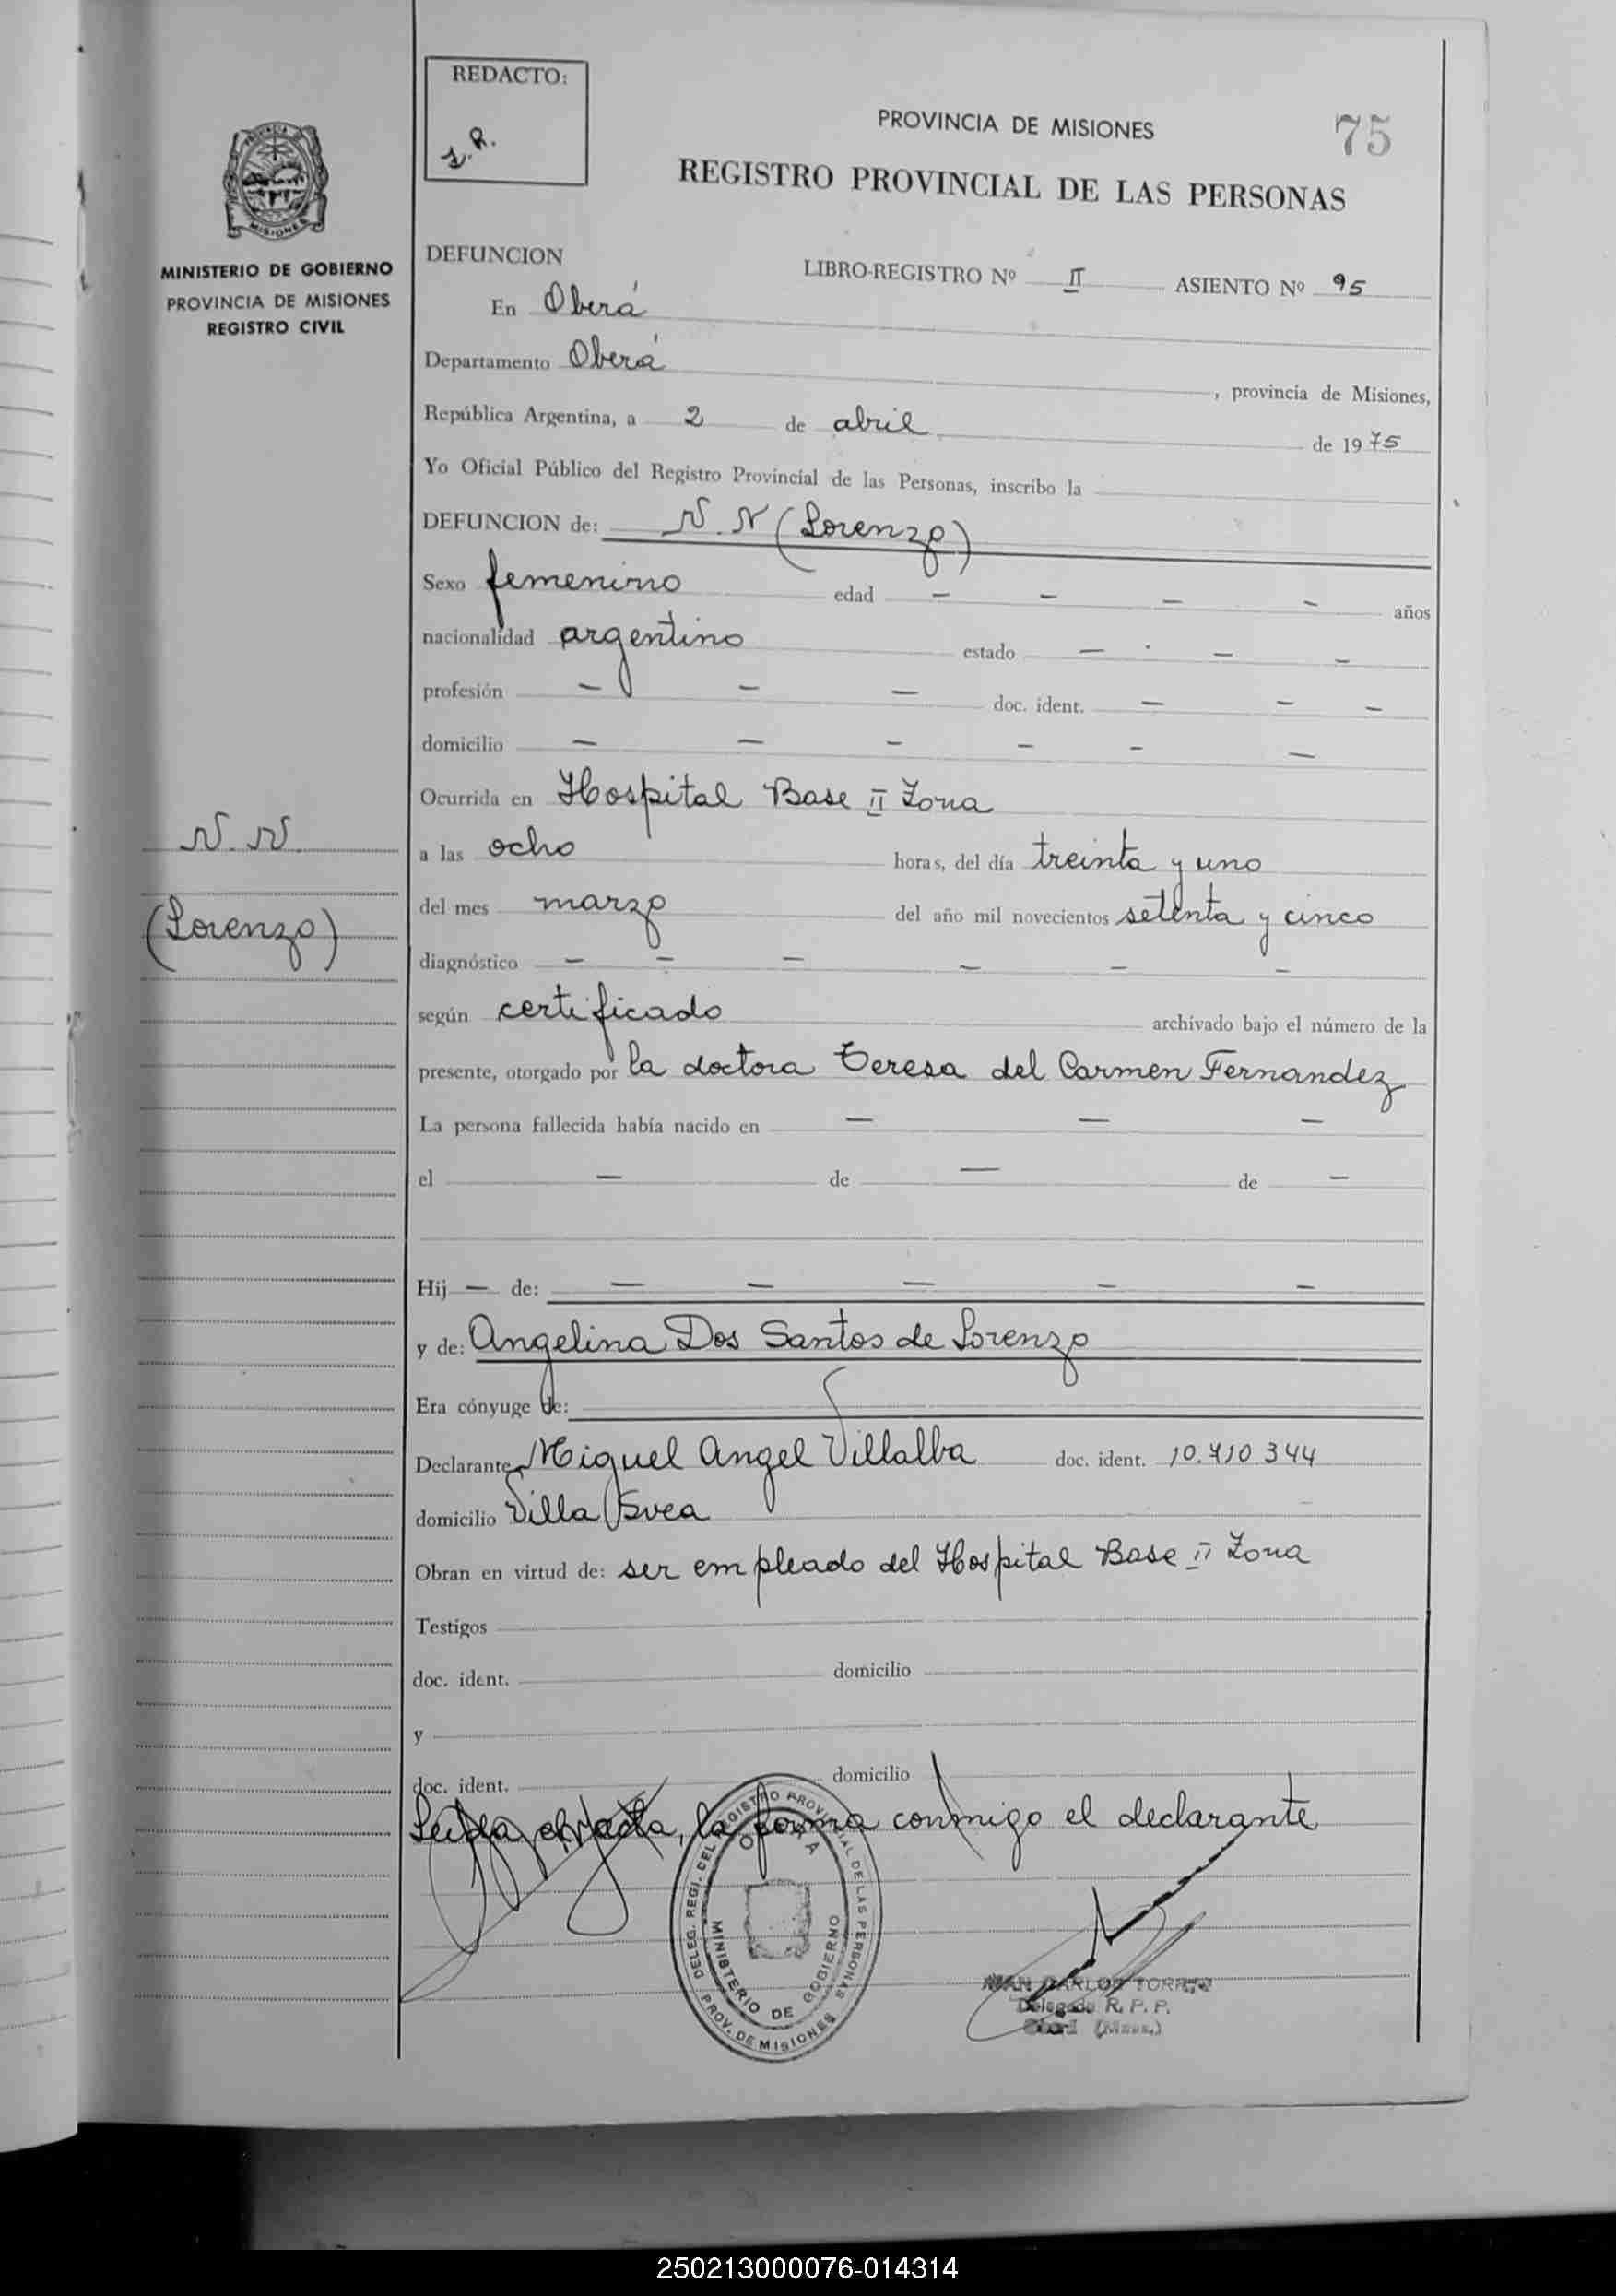 REDACTO:
S.R.
PROVINCIA DE MISIONES
75
REGISTRO PROVINCIAL DE LAS PERSONAS
MISIONES
MINISTERIO DE GOBIERNO
PROVINCIA DE MISIONES
REGISTRO CIVIL
DEFUNCION
LIBRO-REGISTRO Nº II ASIENTO Nº 95
En Oberá
Departamento Oberá, provincia de Misiones,
República Argentina, a 2 de abril de 1975
Yo Oficial Público del Registro Provincial de las Personas, inscribo la
DEFUNCION de: N. N (Lorenzo)
Sexo femenino edad — — — — años
nacionalidad argentino estado — — —
profesión — — — doc. ident. — — —
domicilio — — — — — —
Ocurrida en Hospital Base II Zona
N. N.
a las ocho horas, del día treinta y uno
(Lorenzo)
del mes marzo del año mil novecientos setenta y cinco
diagnóstico — — — — — —
según certificado archivado bajo el número de la
presente, otorgado por la doctora Teresa del Carmen Fernandez
La persona fallecida había nacido en — — —
el — de — de —
Hij — de: — — — — —
y de: Angelina Dos Santos de Lorenzo
Era cónyuge de:
Declarante Miguel Angel Villalba doc. ident. 10.710344
domicilio Villa Svea
Obran en virtud de: ser empleado del Hospital Base II Zona
Testigos
doc. ident. domicilio
y
doc. ident. domicilio
Leida el acta, la forma conmigo el declarante
DELEG. REGI. DEL REGISTRO PROVINCIAL DE LAS PERSONAS
OBERA
MINISTERIO DE GOBIERNO
PROV. DE MISIONES
JUAN CARLOS TORRES
Delegado R. P. P.
Oberá (Mnes.)
250213000076-014314